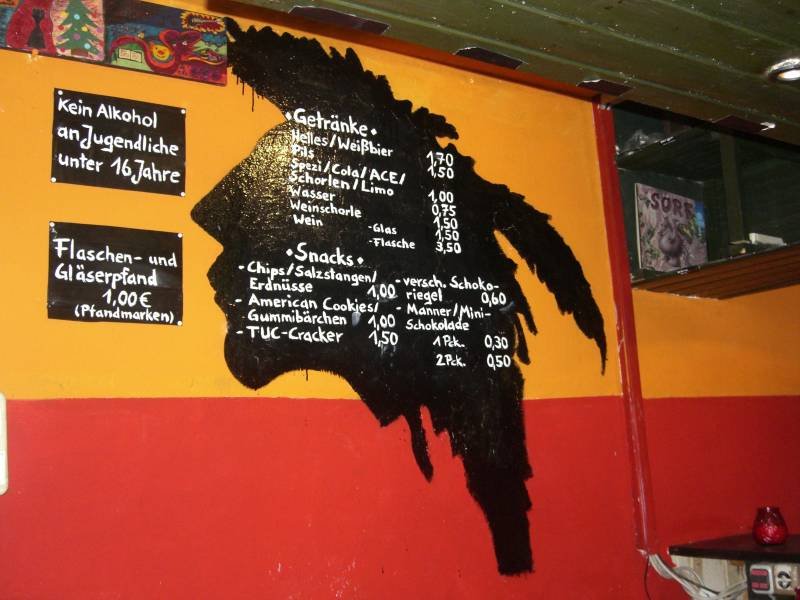 Kein Alkohol
an Jugendliche
unter 16 Jahre
Flaschen- und
Gläserpfand
1,00 €
(Pfandmarken)
• Getränke •
Helles/Weißbier 1,70
Pils 1,50
Spezi/Cola/ACE/
Schorlen/Limo 1,00
Wasser 0,75
Weinschorle 1,50
Wein -Glas 1,50
-Flasche 3,50
• Snacks •
- Chips/Salzstangen/
Erdnüsse 1,00
- American Cookies/
Gummibärchen 1,00
- TUC-Cracker 1,50
- versch. Schoko-
riegel 0,60
- Manner/Mini-
Schokolade
1 Pck. 0,30
2 Pck. 0,50
SORF